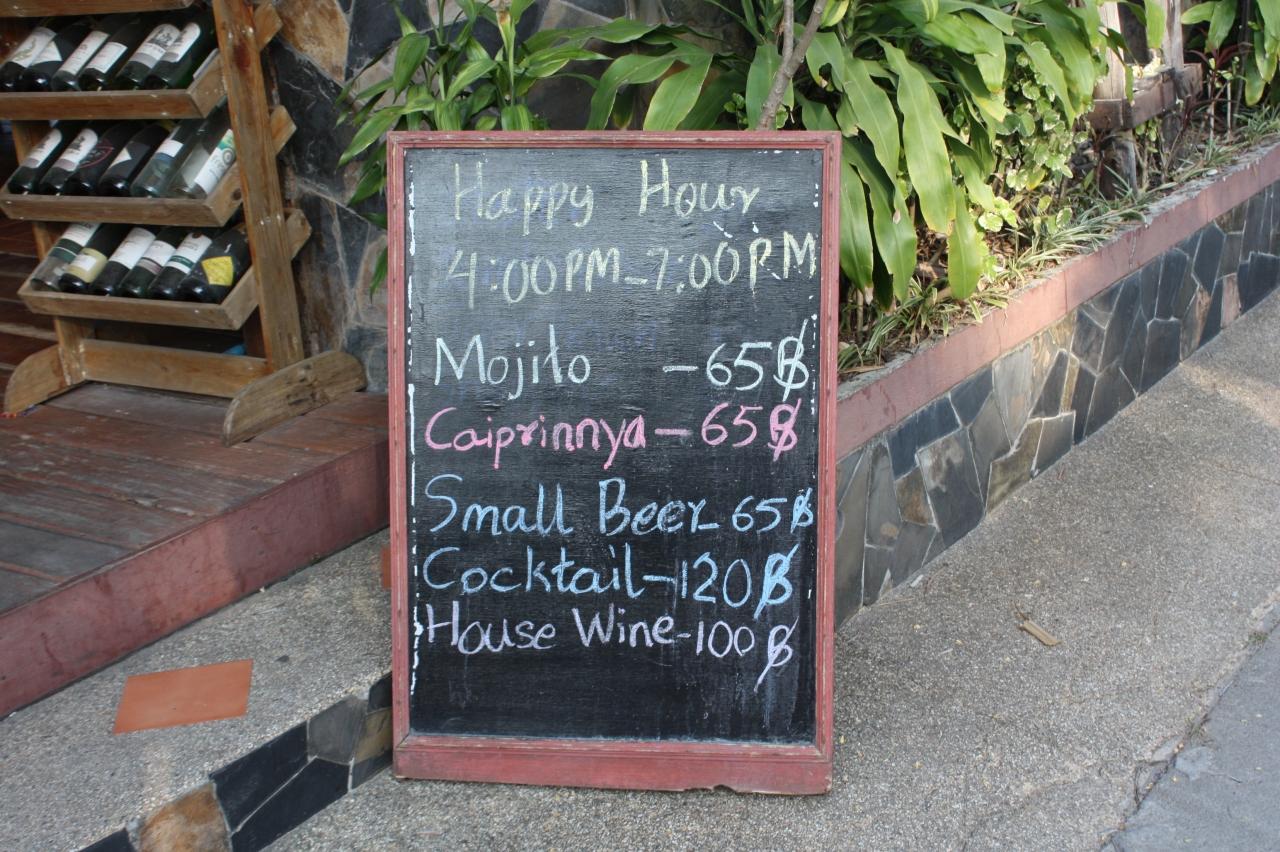 Happy Hour
4:00PM-7:00P.M
Mojito -65฿
Caiprinnya-65฿
Small Beer 65฿
Cocktail-120฿
House Wine-100฿